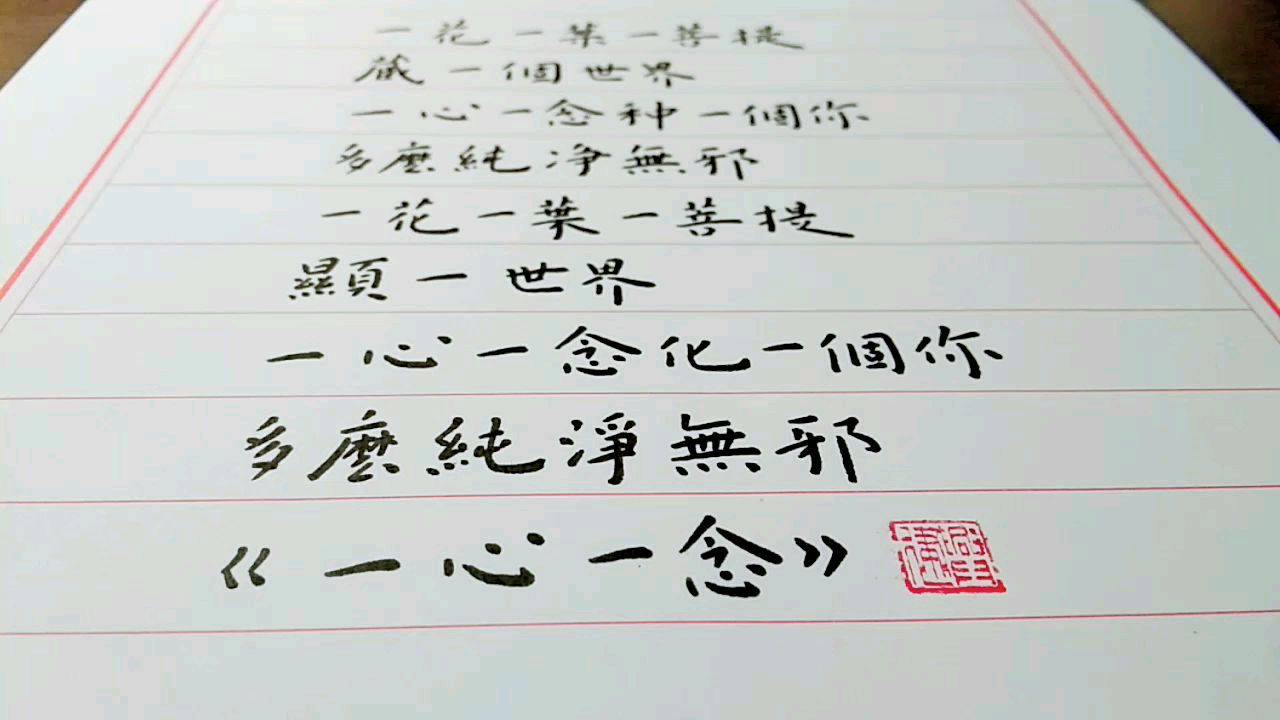 一花一葉一菩提
蔵一個世界
一心一念种一個你
多麼純净無邪
一花一葉一菩提
顯一世界
一心一念化一個你
多麼純淨無邪
《一心一念》